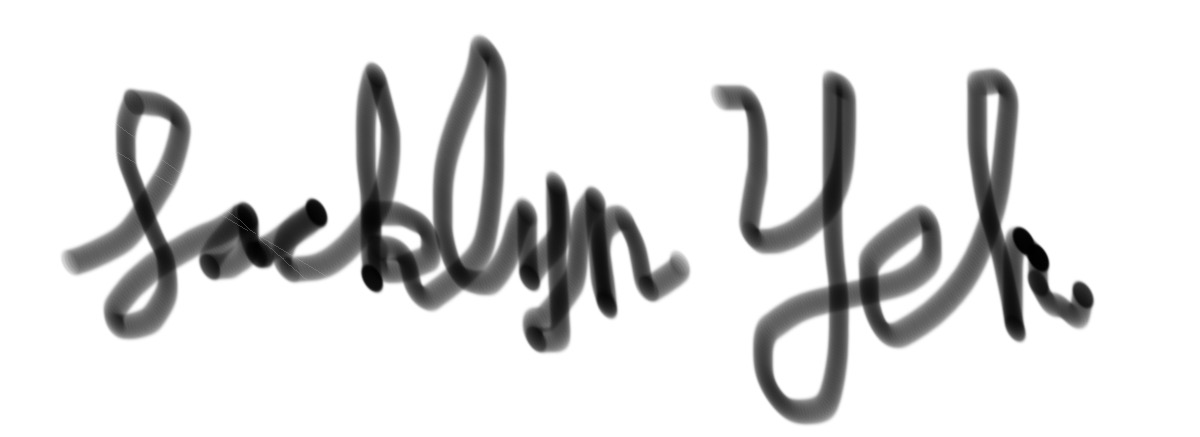 Jacklyn Yeh